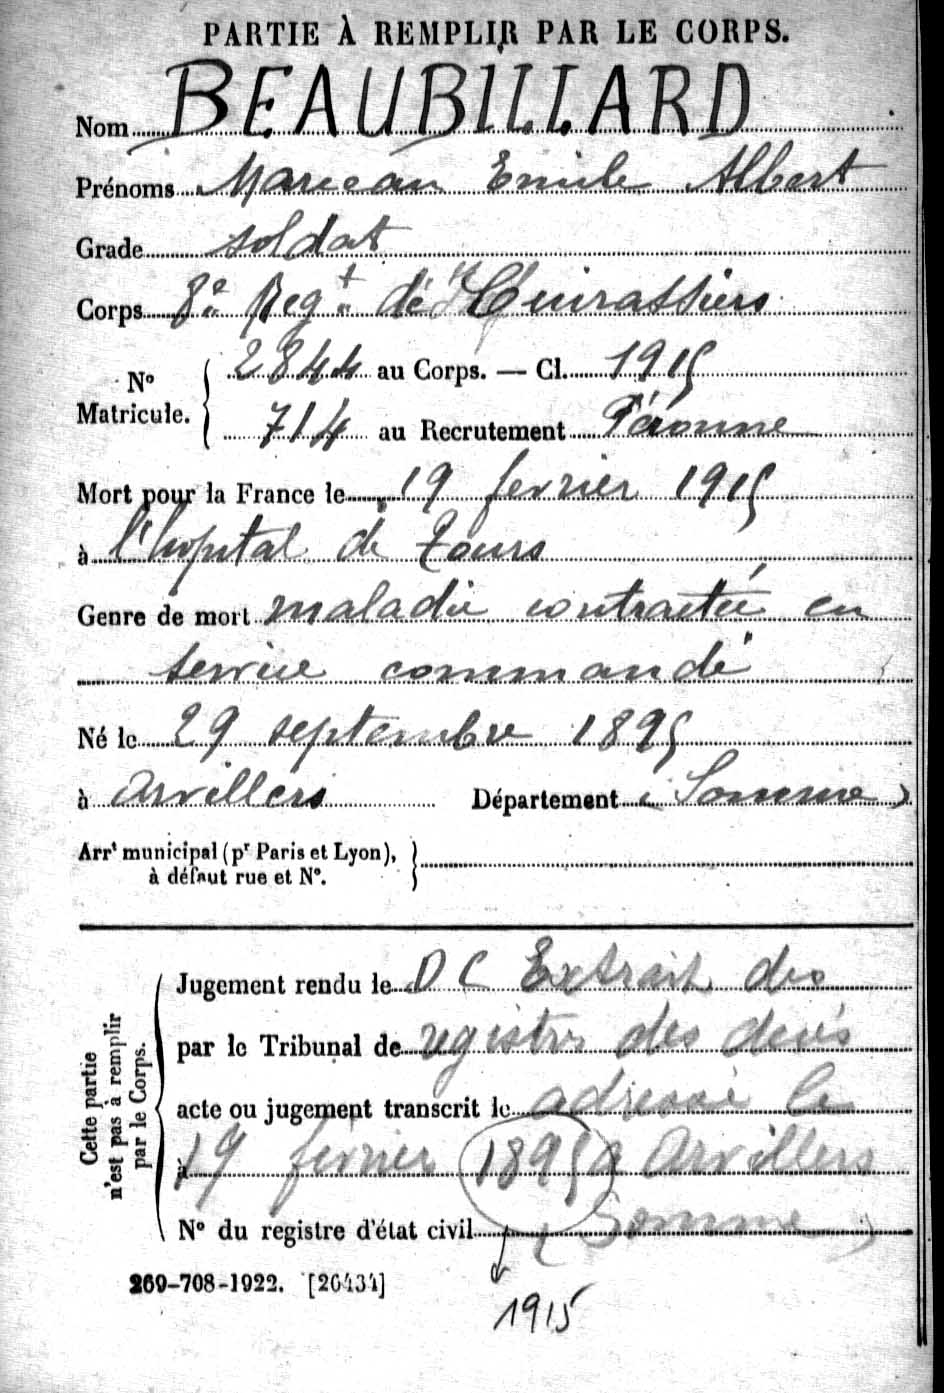 PARTIE À REMPLIR PAR LE CORPS.
Nom BEAUBILLARD
Prénoms Marceau Emile Albert
Grade soldat
Corps 8e Regt de Cuirassiers
No Matricule. { 2844 au Corps. — Cl. 1915
714 au Recrutement Péronne
Mort pour la France le 19 fevrier 1915
à l'hopital de Tours
Genre de mort maladie contractée en
service commandé
Né le 29 septembre 1895
à Arvillers Département (Somme)
Arrt municipal (pr Paris et Lyon), }
à défaut rue et No.
Cette partie
n'est pas à remplir
par le Corps.
Jugement rendu le DC Extrait des
par le Tribunal de registres des décès
acte ou jugement transcrit le adressé le
à 19 fevrier 1895 à Arvillers
No du registre d'état civil (Somme)
269-708-1922. [26434]
1915